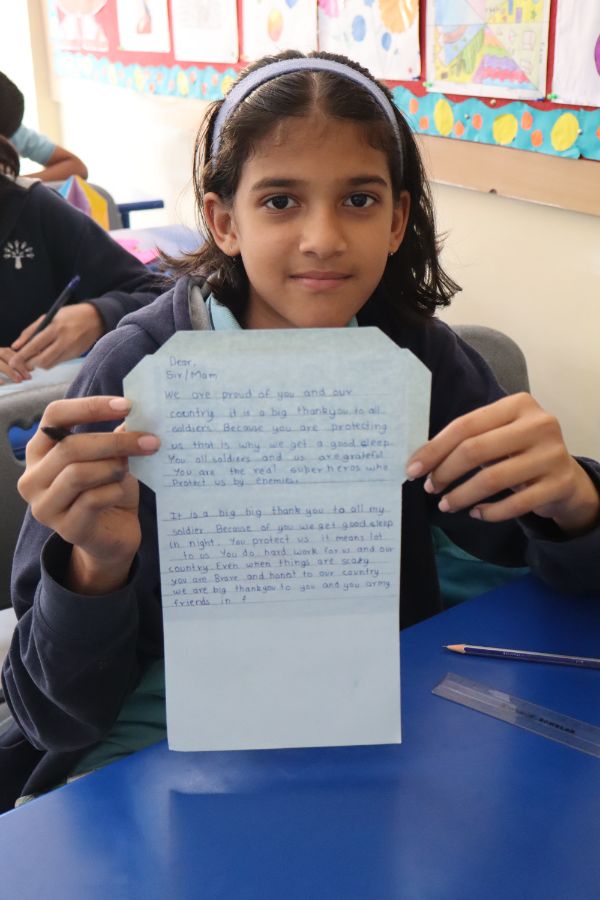 Dear,
Sir/Mam
We are proud of you and our
country it is a big thankyou to all
soldiers. Because you are protecting
us that is why we get a good sleep
You all soldiers and us are grateful
You are the real superheros who
Protect us by enemies.
It is a big big thank you to all my
soldier. Because of you we get good sleep
in night. You protect us it means lot
to us. You do hard work for us and our
country. Even when things are scary
you are Brave and honot to our country
we are big thankyou to you and you army
friends in f